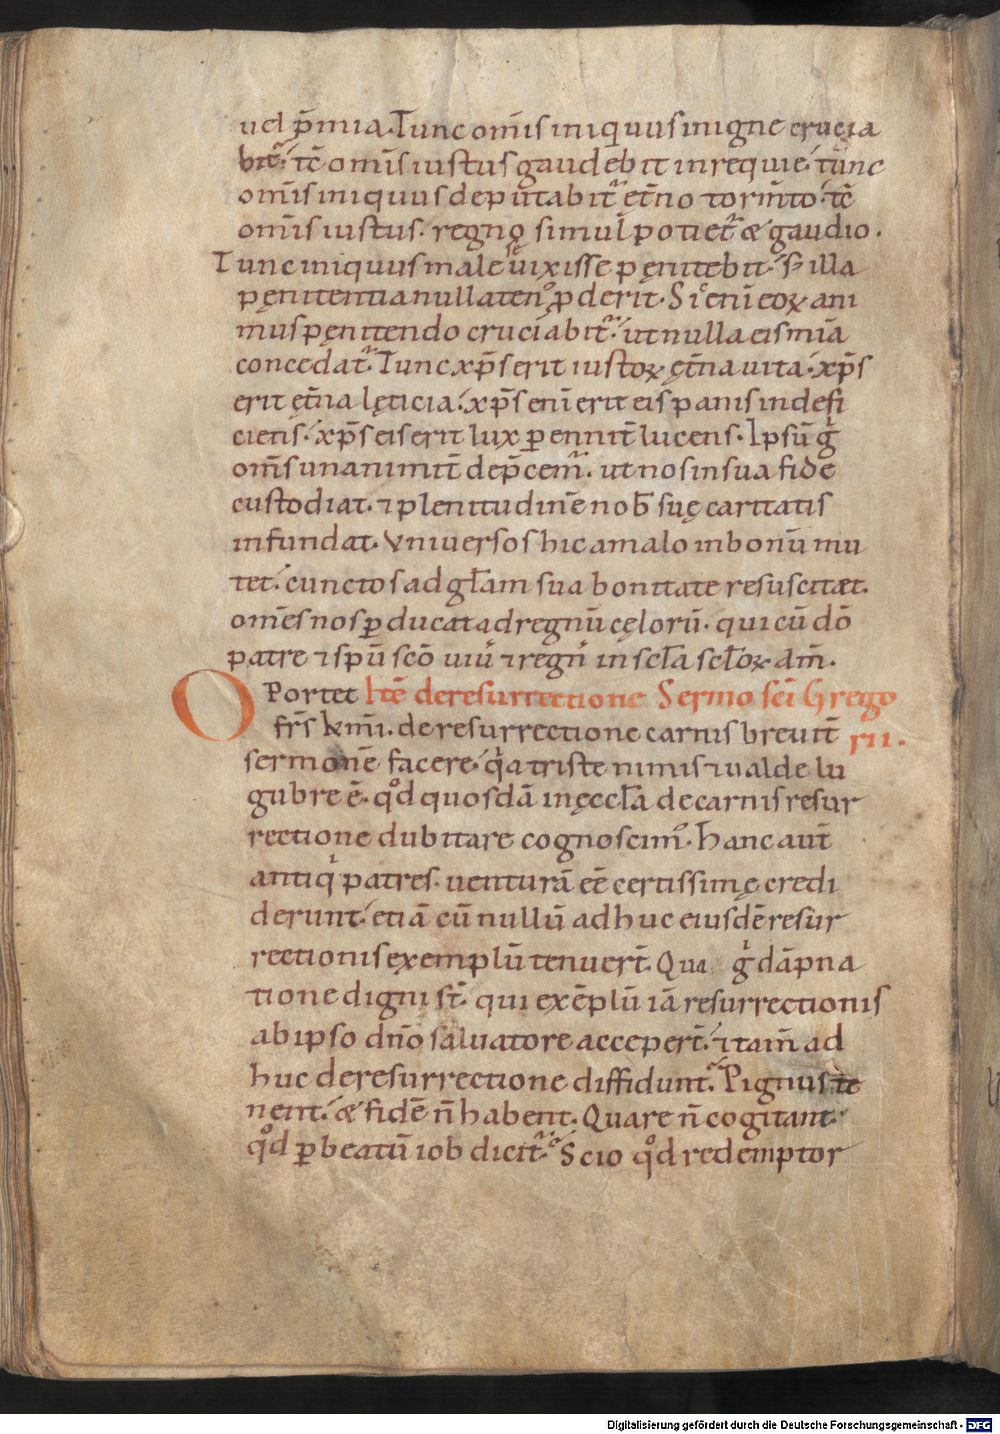 uel p̄mia. Tunc om̄is iniquus in igne crucia
bit᷑. tc̄ om̄is iustus gaudebit in requie. tunc
om̄is iniquus deputabit᷑ ęt̄no torm̄to. tc̄
om̄is iustus. regno simul potiet᷑ & gaudio.
Tunc iniquus male se uixisse pęnitebit. s; illa
pęnitentia nullaten᷒ ꝓderit. Sic eni̅ eoꝝ ani
mus pęnitendo cruciabit᷑. ut nulla eis mi̅a
concedat᷑. Tunc xp̄s erit iustoꝝ ęt̄na uita. xp̄s
erit ęt̄na lęticia. xp̄s eni̅ erit eis panis indefi
ciens. xp̄s eis erit lux ꝑennit̄ lucens. Ipsū gͥ
om̄s unanimit̄ dep̄cem᷑. ut nos in sua fide
custodiat. ⁊ plenitudinē nob̄ suę caritatis
infundat. Vniuersos hic a malo in bonū mu
tet. cunctos ad gl̄am sua bonitate resuscitæt.
om̄es nos ꝑducat ad regnū cęlorū. qui cū dō
patre ⁊ sp̄u sc̄o uiuͥ ⁊ regnͥ in sc̄la sc̄loꝝ. Am̄.
OPortet Itē de resurrectione Sermo sc̄i Grego
fr̄s km̄i. de resurrectione carnis breuit̄ rii.
sermonē facere. qͥa triste nimis ⁊ ualde lu
gubre ē. qͦd quosdā in ęccl̄a de carnis resur
rectione dubitare cognoscim᷒. Hanc aut̄
antiqͥ patres. uenturā eē certissimę credi
derunt. etiā cū nullū adhuc eiusdē resur
rectionis exemplū tenuer̄t. Qua gͥ dāpna
tione digni st̄. qui exēplū iā resurrectionis
ab ipso dn̄o saluatore acceper̄t. ⁊ tam̄ ad
huc de resurrectione diffidunt. Pignus te
nent. & fidē n̄ habent. Quare n̄ cogitant
qͦd ꝑ beatū iob dicit᷑. Scio qͦd redemptor
Digitalisierung gefördert durch die Deutsche Forschungsgemeinschaft - DFG